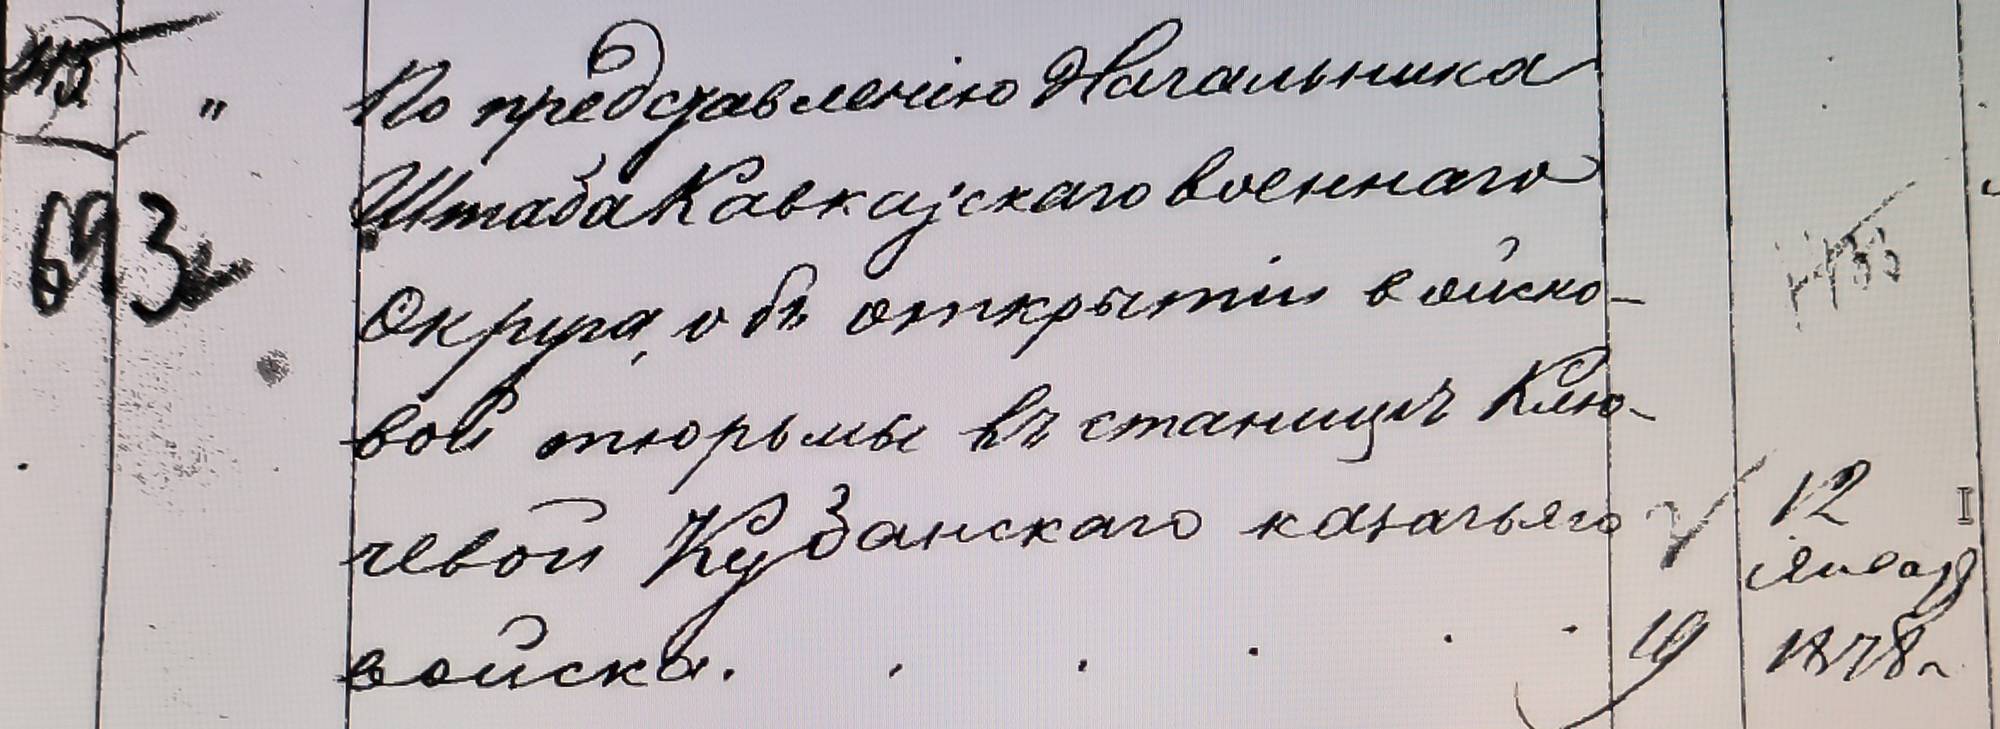 693
" По представленію Начальника
Штаба Кавказскаго военнаго
Округа, объ открытіи войско-
вой тюрьмы въ станицѣ Клю-
чевой Кубанскаго казачьяго
войска. . . . . . 19
12
Январ
1878 г.